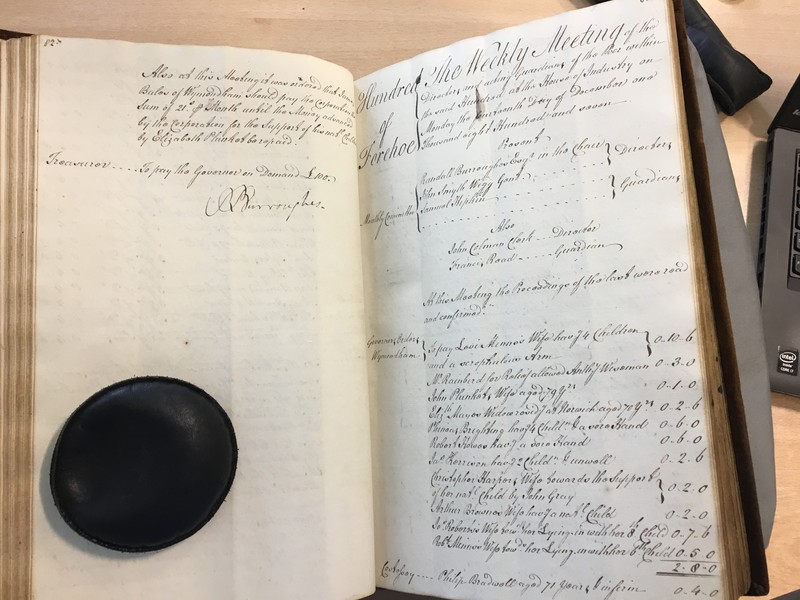 82
Also at this Meeting it was ordered that James
Bales of Wymondham should pay the Corporation the
Sum of 21s. ⅌ Month until the Money advanced
by the Corporation for the Support of his natl. Child
by Elizabeth Plunket be repaid.
Treasurer .... To pay the Governor on Demand £100.
Burroughes.
Hundred
of
Forehoe
The Weekly Meeting of the
Directors and acting Guardians of the Poor within
the said Hundred at the House of Industry on
Monday the fourteenth Day of December one
thousand eight Hundred and seven
Present
Randall Burroughes Esqr. in the Chair
John Smyth Wigg Gent.
Directors
Monthly Committee
Samuel Stephen
Guardians
Also
John Colman Clark ... Director
Francis Road ...... Guardian
At this Meeting the Proceedings of the last were read
and confirmed.
Governors Orders
Wymondham
To pay Levi Minns's Wife havg. 4 Children
and a scrophulous Arm
0-10-6
Mr. Rainbird for Relief allowed Anthy. Wiseman 0-3-0
John Plunket's Wife aged 79 Yrs. 0-1-0
Elizth. Mayes Widow resdg. at Norwich aged 70 Yrs. 0-2-6
Phineas Brighting havg. 4 Childn. & a sore Hand 0-6-0
Robert Howes havg. a sore Hand 0-6-0
Jas. Harrison havg. 2 Childn. & unwell 0-2-6
Christopher Harper's Wife towards the Support
of her natl. Child by John Gray
0-2-0
Arthur Browne's Wife havg. a natl. Child 0-2-0
Jas. Roberts's Wife towds. her Lying-in with her 8th Child 0-7-6
Robt. Minns's Wife towds. her Lying-in with her 6th Child 0-5-0
2-8-0
Costessey .... Philip Bradwell aged 71 Years & infirm 0-4-0
intel
CORE i7